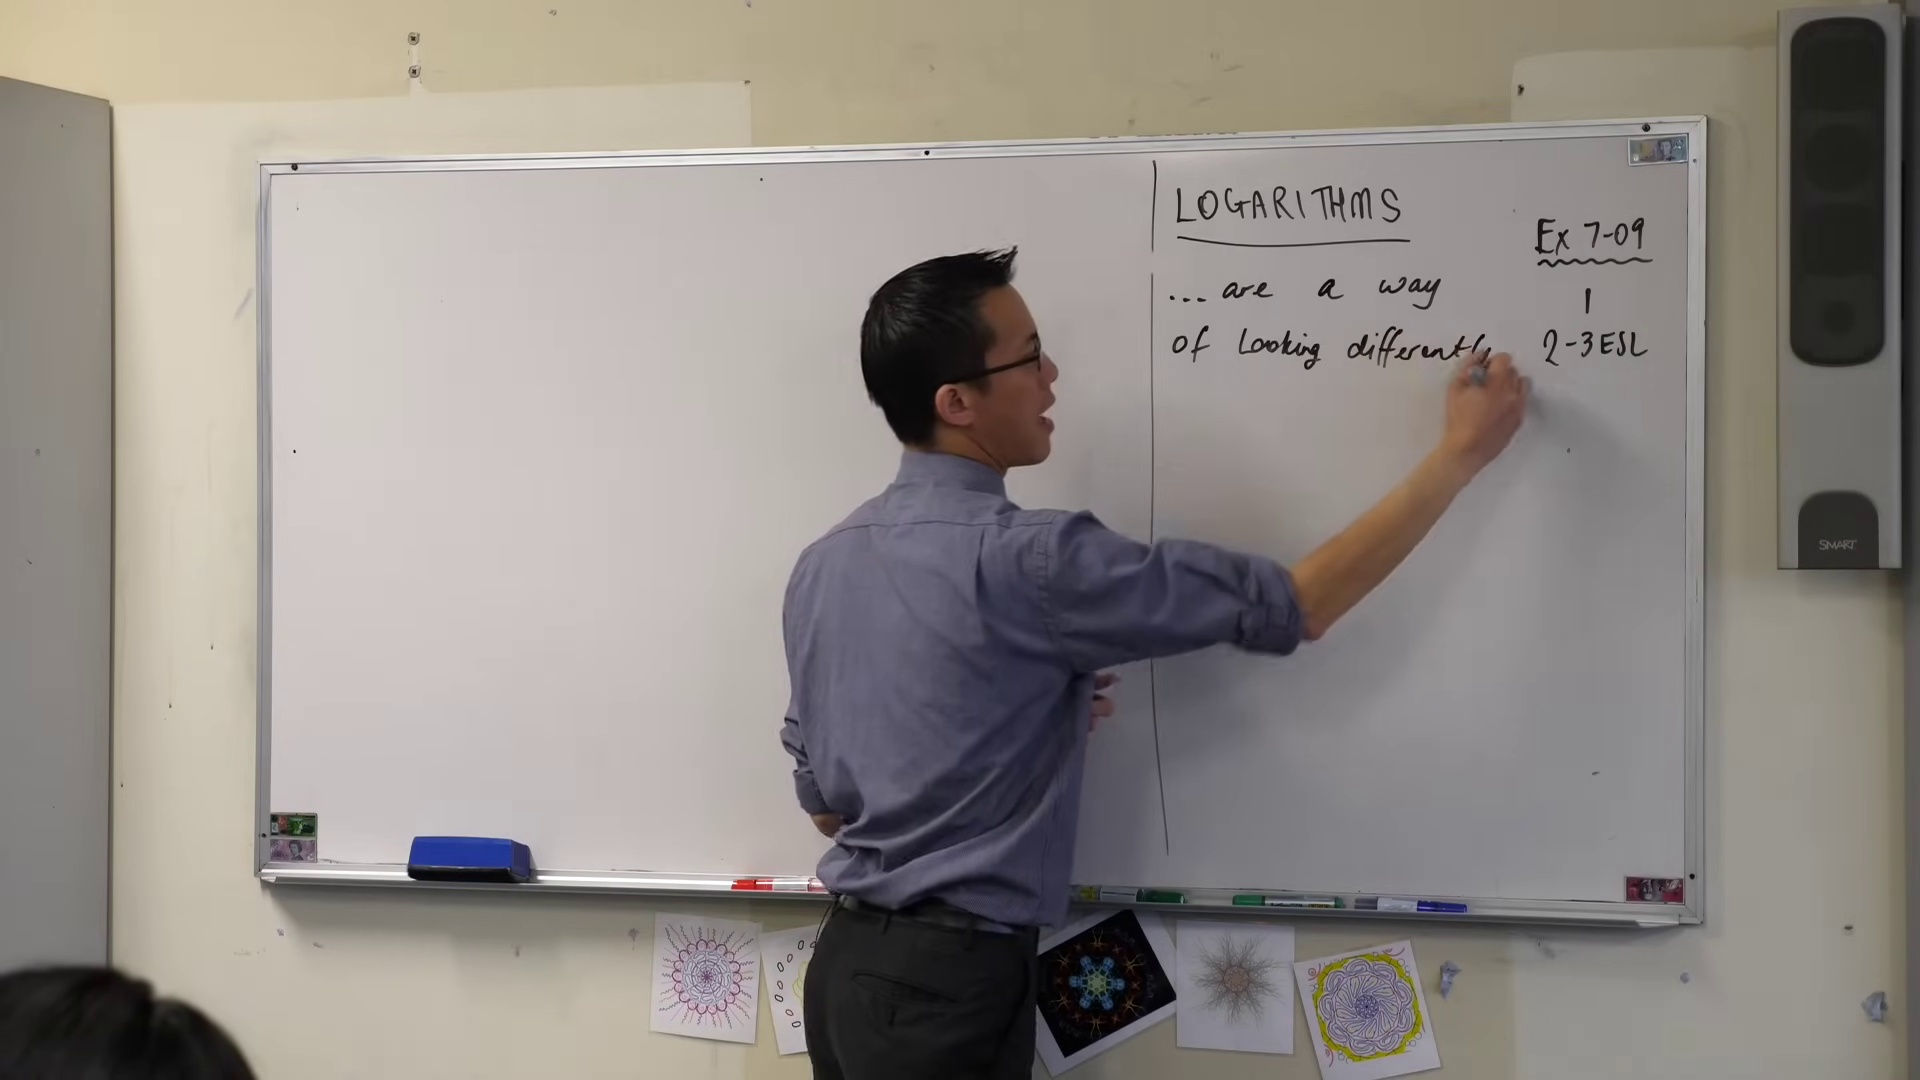 LOGARITHMS
... are a way
of Looking differently
Ex 7-09
1
2-3ESL
SMART